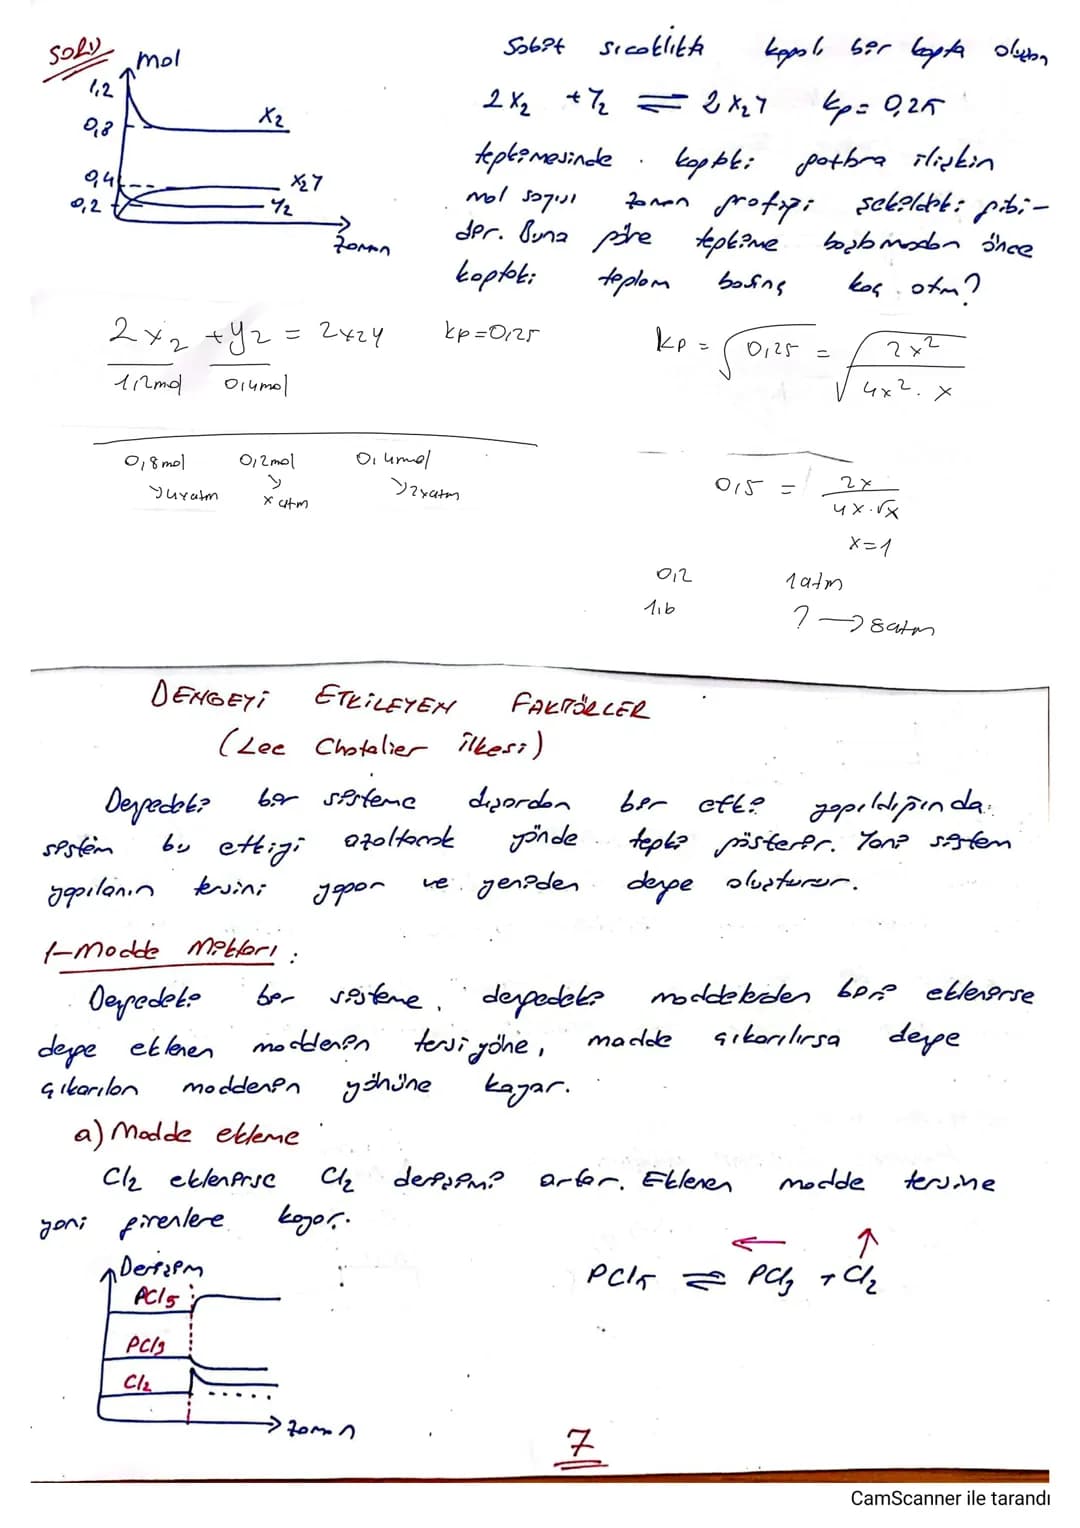 SORU
mol
1,2
0,8
0,4
0,2
X2
X2Y
Y2
zaman
Sabit sıcaklıkta kapalı bir kapta oluşan
2X2 + Y2 ⇌ 2X2Y kp = 0,25
tepkimesinde kaptaki gazlara ilişkin
mol sayısı zaman grafiği şekildeki gibi-
dir. Buna göre tepkime başlamadan önce
kaptaki toplam basınç kaç atm?
2x2 + y2 = 2x2y kp=0,25
1,2mol 0,4mol
0,8mol 0,2mol 0,4mol
4xatm x atm 2xatm
kp = √0,25 = √2x² / 4x². x
0,5 = 2x / 4x.√x
x=1
0,2 1atm
1,6 ? → 8atm
DENGEYİ ETKİLEYEN FAKTÖRLER
(Lee Chatalier ilkesi)
Dengedeki bir sisteme dışardan bir etki yapıldığında
sistem bu etkiyi azaltacak yönde tepki gösterir. Yani sistem
yapılanın tersini yapar ve yeniden denge oluşturur.
1-Madde Miktarı:
Dengedeki bir sisteme, dengedeki maddelerden biri eklenirse
denge eklenen maddenin tersi yöne, madde çıkarılırsa denge
çıkarılan maddenin yönüne kayar.
a) Madde ekleme
Cl2 eklenirse Cl2 derişimi artar. Eklenen madde tersine
yani girenlere kayar.
Derişim
PCl5
PCl3
Cl2
zaman
PCl5 ⇌ PCl3 + Cl2
7
CamScanner ile tarandı